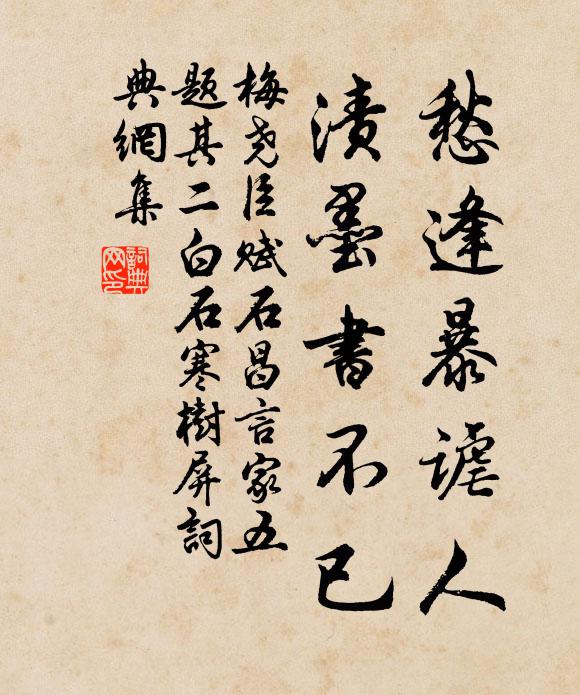 愁逢暴謔人
漬墨書不已
梅堯臣賦石昌言家五
題其二白石寒樹屏詞
典網集
詞典網印